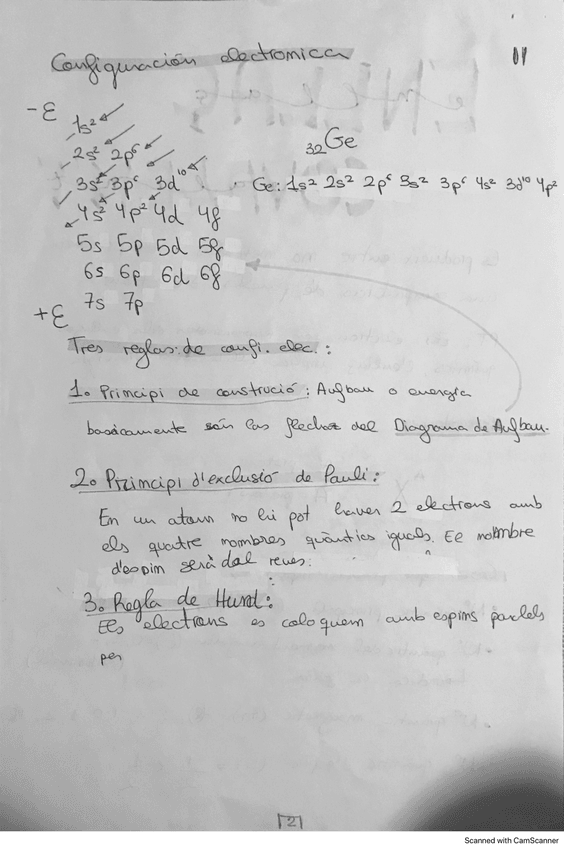 Configuración electronica
01
-E
1s²
2s² 2p⁶
₃₂Ge
3s² 3p⁶ 3d¹⁰
Ge: 1s² 2s² 2p⁶ 3s² 3p⁶ 4s² 3d¹⁰ 4p²
4s² 4p² 4d 4f
5s 5p 5d 5f
6s 6p 6d 6f
7s 7p
+E
Tres reglas de confi. elec.:
1. Principi de construció: Aufbau o energía
basicamente són las flechas del Diagrama de Aufbau.
2. Principi d'exclusió de Pauli:
En un atom no hi pot haver 2 electrons amb
els quatre nombres quàntics iguals. El nombre
d'espim serà dal reves.
3. Regla de Hund:
Els electrons es coloquem amb espins parlels
per
2
Scanned with CamScanner